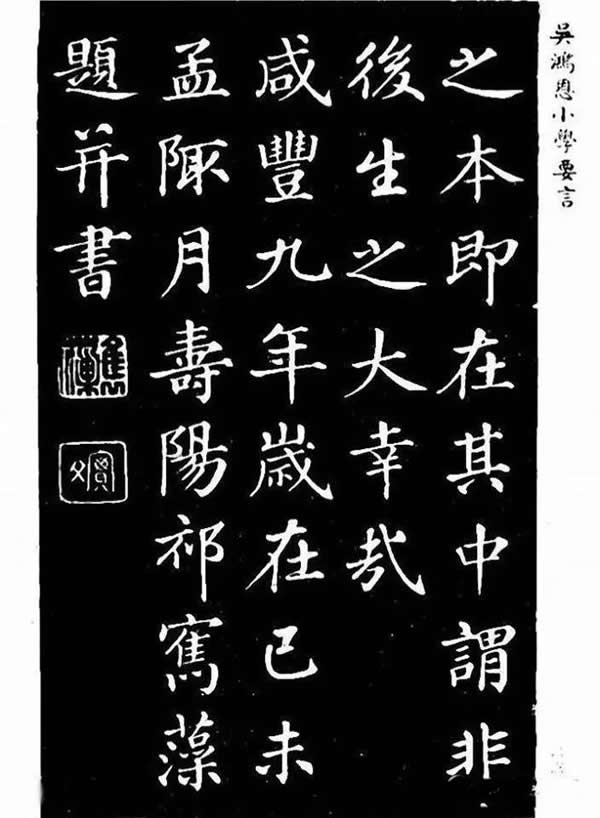 吳鴻恩小學要言
之本即在其中謂非
後生之大幸哉
咸豐九年歲在己未
孟陬月壽陽祁寯藻
題并書